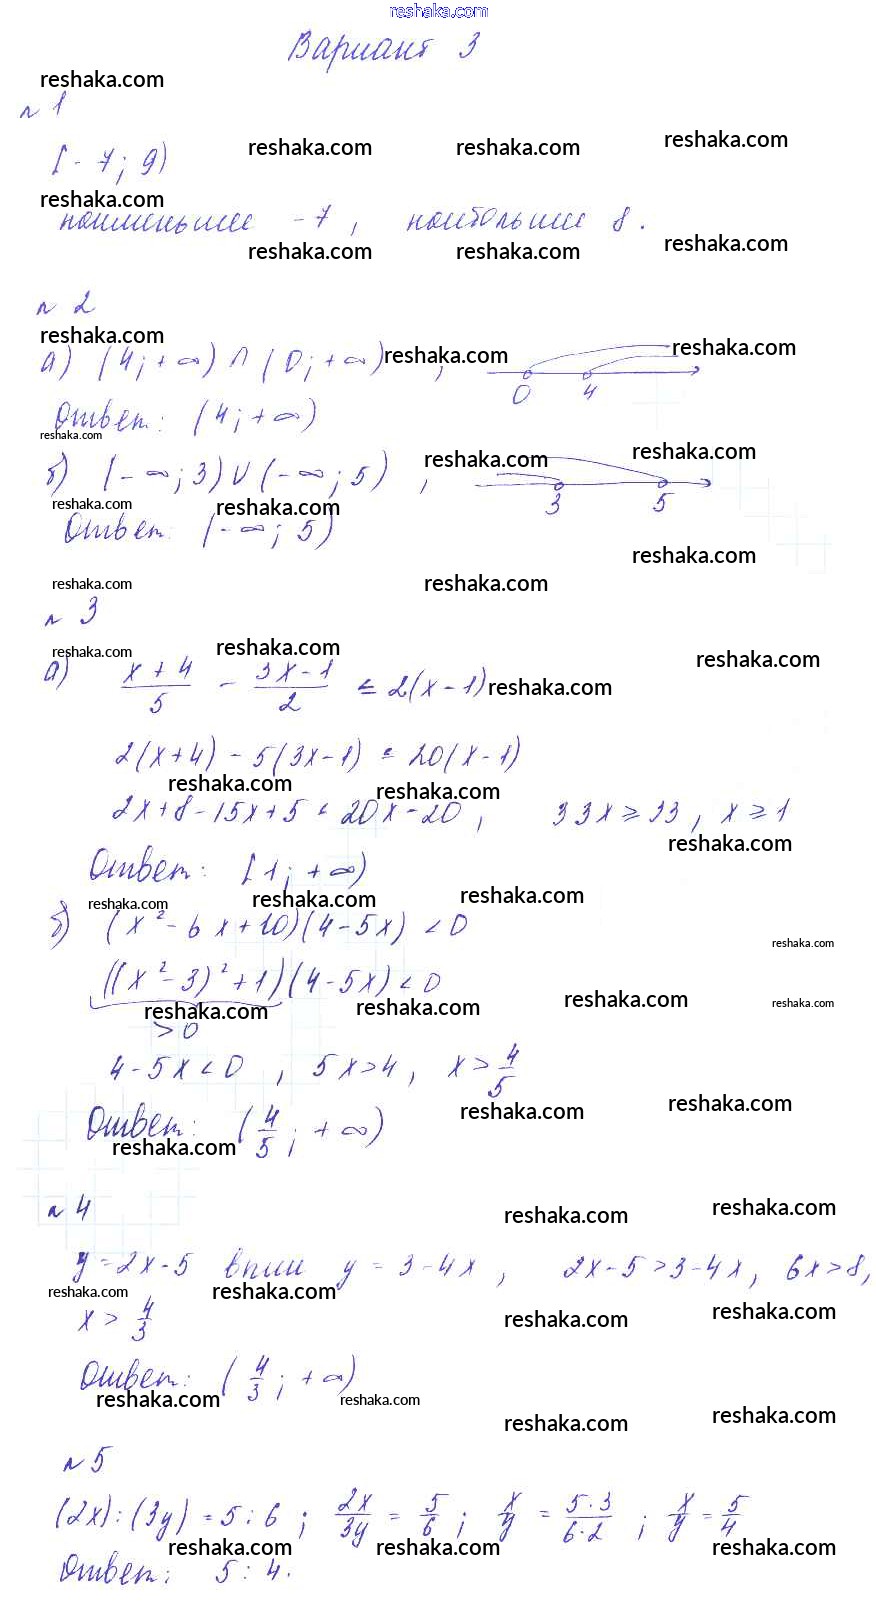 reshaka.com
Вариант 3
reshaka.com
№ 1
[-7; 9)
reshaka.com reshaka.com reshaka.com
reshaka.com
наименьшее -7, наибольшее 8.
reshaka.com reshaka.com reshaka.com
№ 2
reshaka.com
а) (4; +∞) ∩ (0; +∞), reshaka.com reshaka.com
0 4
Ответ: (4; +∞)
reshaka.com
б) (-∞; 3) ∪ (-∞; 5), reshaka.com reshaka.com
3 5
reshaka.com reshaka.com
Ответ: (-∞; 5)
reshaka.com
reshaka.com reshaka.com
№ 3
reshaka.com reshaka.com reshaka.com
а) (x+4)/5 - (3x-1)/2 ≤ 2(x-1) reshaka.com
2(x+4) - 5(3x-1) ≤ 20(x-1)
reshaka.com reshaka.com
2x+8-15x+5 ≤ 20x-20, 33x ≥ 33, x ≥ 1
reshaka.com
Ответ: [1; +∞)
reshaka.com reshaka.com reshaka.com
б) (x²-6x+10)(4-5x) < 0
reshaka.com
((x²-3)²+1)(4-5x) < 0
reshaka.com reshaka.com reshaka.com reshaka.com
>0
4-5x<0, 5x>4, x > 4/5
reshaka.com reshaka.com
Ответ: (4/5; +∞)
reshaka.com
№ 4
reshaka.com reshaka.com
y=2x-5 выше y=3-4x, 2x-5>3-4x, 6x>8,
reshaka.com reshaka.com
x > 4/3
reshaka.com reshaka.com
Ответ: (4/3; +∞)
reshaka.com reshaka.com
reshaka.com reshaka.com
№ 5
(2x):(3y) = 5:6; 2x/3y = 5/6; x/y = 5·3/6·2; x/y = 5/4
reshaka.com reshaka.com reshaka.com
Ответ: 5:4.